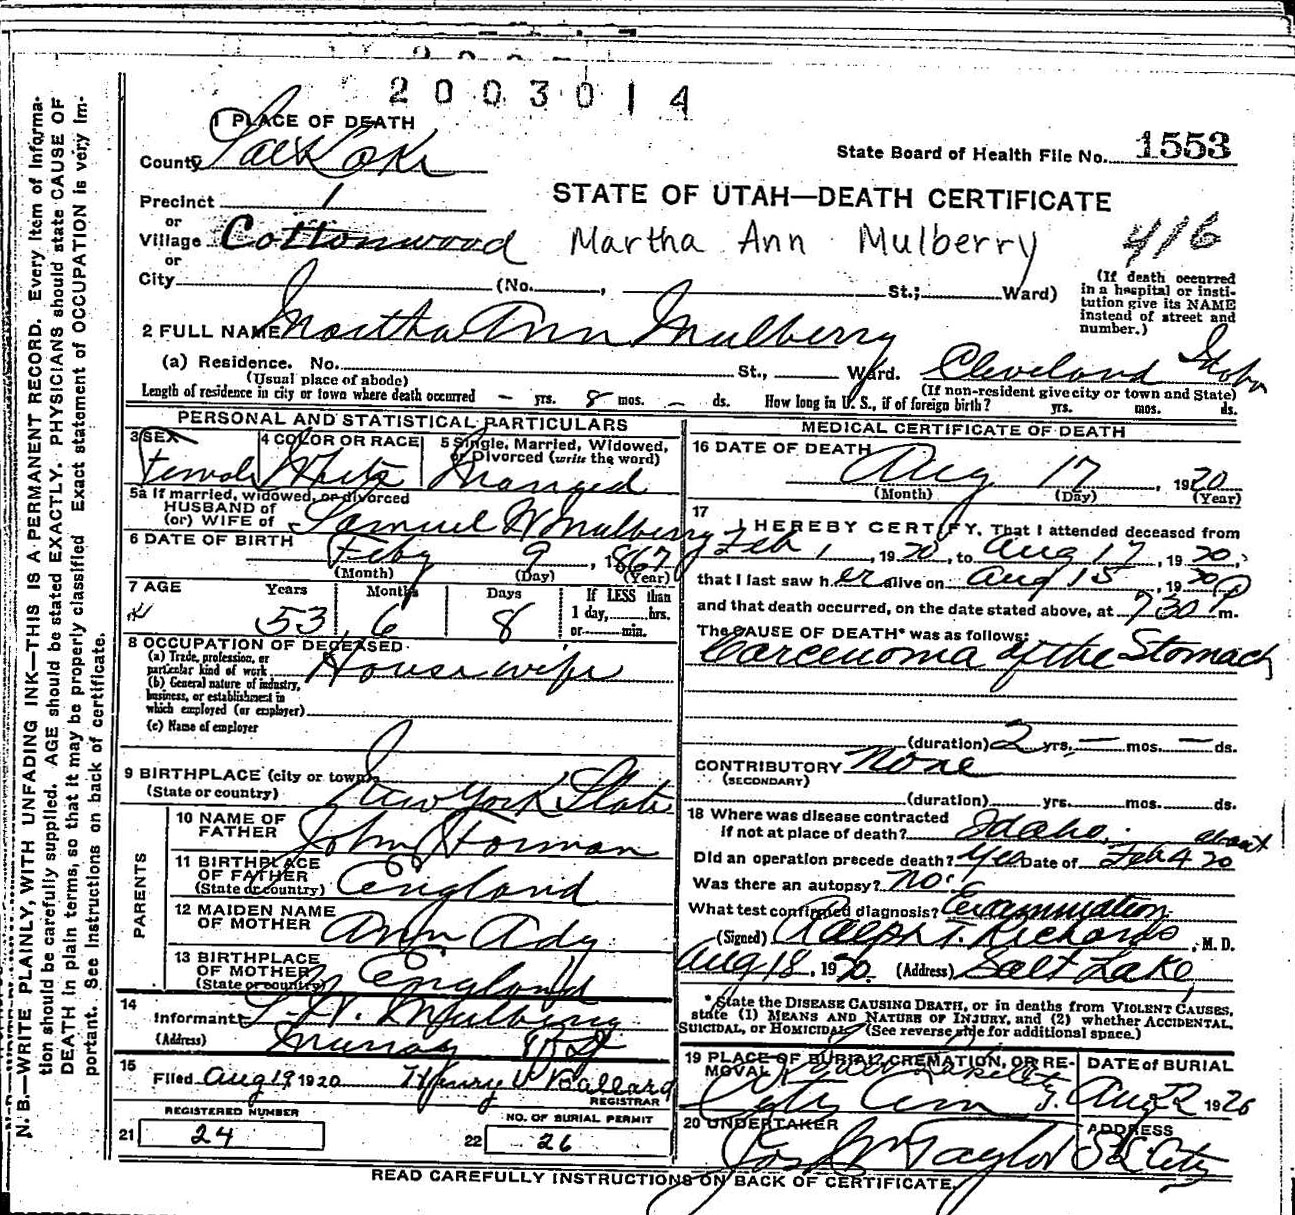 2003014
1 PLACE OF DEATH
County Salt Lake
State Board of Health File No. 1553
Precinct 1
STATE OF UTAH—DEATH CERTIFICATE
or
Village Cottonwood Martha Ann Mulberry 416
or
City (No. , St.; Ward)
(If death occurred in a hospital or institution give its NAME instead of street and number.)
2 FULL NAME Martha Ann Mulberry
(a) Residence. No. St., Ward. Cleveland Idaho
(Usual place of abode) (If non-resident give city or town and State)
Length of residence in city or town where death occurred — yrs. 8 mos. — ds. How long in U. S., if of foreign birth? yrs. mos. ds.
PERSONAL AND STATISTICAL PARTICULARS
3 SEX 4 COLOR OR RACE 5 Single, Married, Widowed, or Divorced (write the word)
Female White Married
5a If married, widowed, or divorced
HUSBAND of
(or) WIFE of Samuel W Mulberry
6 DATE OF BIRTH
Feby 9, 1867
(Month) (Day) (Year)
7 AGE Years Months Days If LESS than
1 day, hrs.
53 6 8 or min.
8 OCCUPATION OF DECEASED
(a) Trade, profession, or
particular kind of work Housewife
(b) General nature of industry,
business, or establishment in
which employed (or employer)
(c) Name of employer
9 BIRTHPLACE (city or town)
(State or country) New York State
PARENTS
10 NAME OF
FATHER John Horman
11 BIRTHPLACE
OF FATHER England
(State or country)
12 MAIDEN NAME
OF MOTHER Ann Ady
13 BIRTHPLACE
OF MOTHER England
(State or country)
14
Informant S. W. Mulberry
(Address) Murray
15
Filed Aug 19 1920 Henry V Ballard
REGISTRAR
REGISTERED NUMBER NO. OF BURIAL PERMIT
21 24 22 26
MEDICAL CERTIFICATE OF DEATH
16 DATE OF DEATH
Aug 17, 1920
(Month) (Day) (Year)
17
I HEREBY CERTIFY, That I attended deceased from
Feb 1, 1920, to Aug 17, 1920,
that I last saw her alive on Aug 15, 1920
and that death occurred, on the date stated above, at 730 P m.
The CAUSE OF DEATH* was as follows:
Carcenoma of the Stomach
(duration) 2 yrs. — mos. — ds.
CONTRIBUTORY None
(SECONDARY)
(duration) yrs. mos. ds.
18 Where was disease contracted
if not at place of death? Idaho.
Did an operation precede death? Yes Date of about Feb 4 20
Was there an autopsy? No.
What test confirmed diagnosis? Examination
(Signed) Ralph T. Richards, M. D.
Aug 18, 1920. (Address) Salt Lake
* State the DISEASE CAUSING DEATH, or in deaths from VIOLENT CAUSES,
state (1) MEANS AND NATURE OF INJURY, and (2) whether ACCIDENTAL,
SUICIDAL, or HOMICIDAL. (See reverse side for additional space.)
19 PLACE OF BURIAL, CREMATION, OR REMOVAL DATE of BURIAL
City Cem Aug 22 1920
20 UNDERTAKER ADDRESS
Jos Wm Taylor S L City
READ CAREFULLY INSTRUCTIONS ON BACK OF CERTIFICATE.
N. B.—WRITE PLAINLY, WITH UNFADING INK—THIS IS A PERMANENT RECORD. Every item of information should be carefully supplied. AGE should be stated EXACTLY. PHYSICIANS should state CAUSE OF DEATH in plain terms, so that it may be properly classified. Exact statement of OCCUPATION is very important. See Instructions on back of certificate.